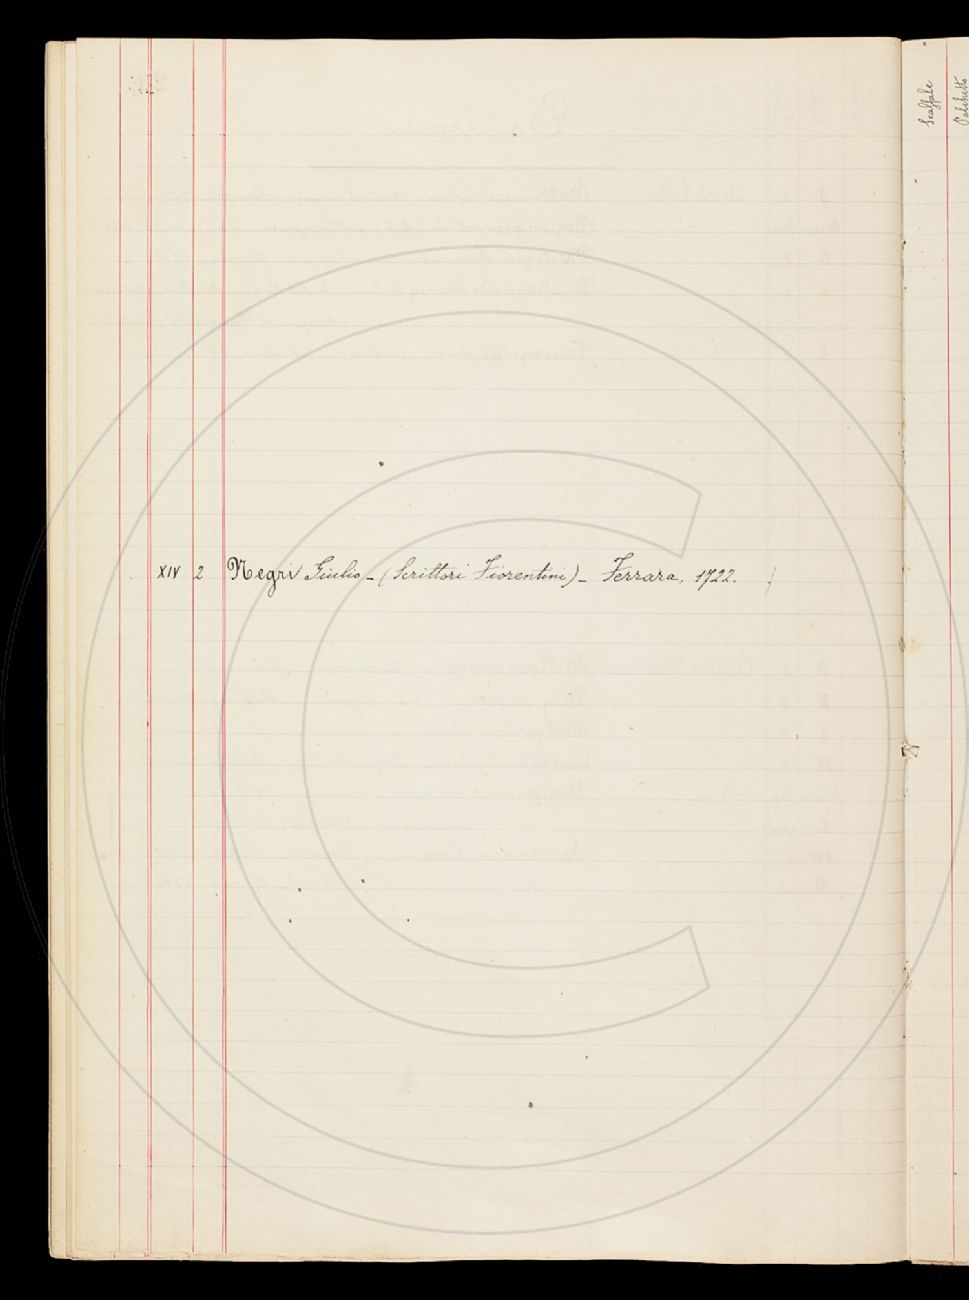 XIV 2 Negri Giulio - (Scrittori Fiorentini) - Ferrara, 1722.
Scaffale
Palchetto